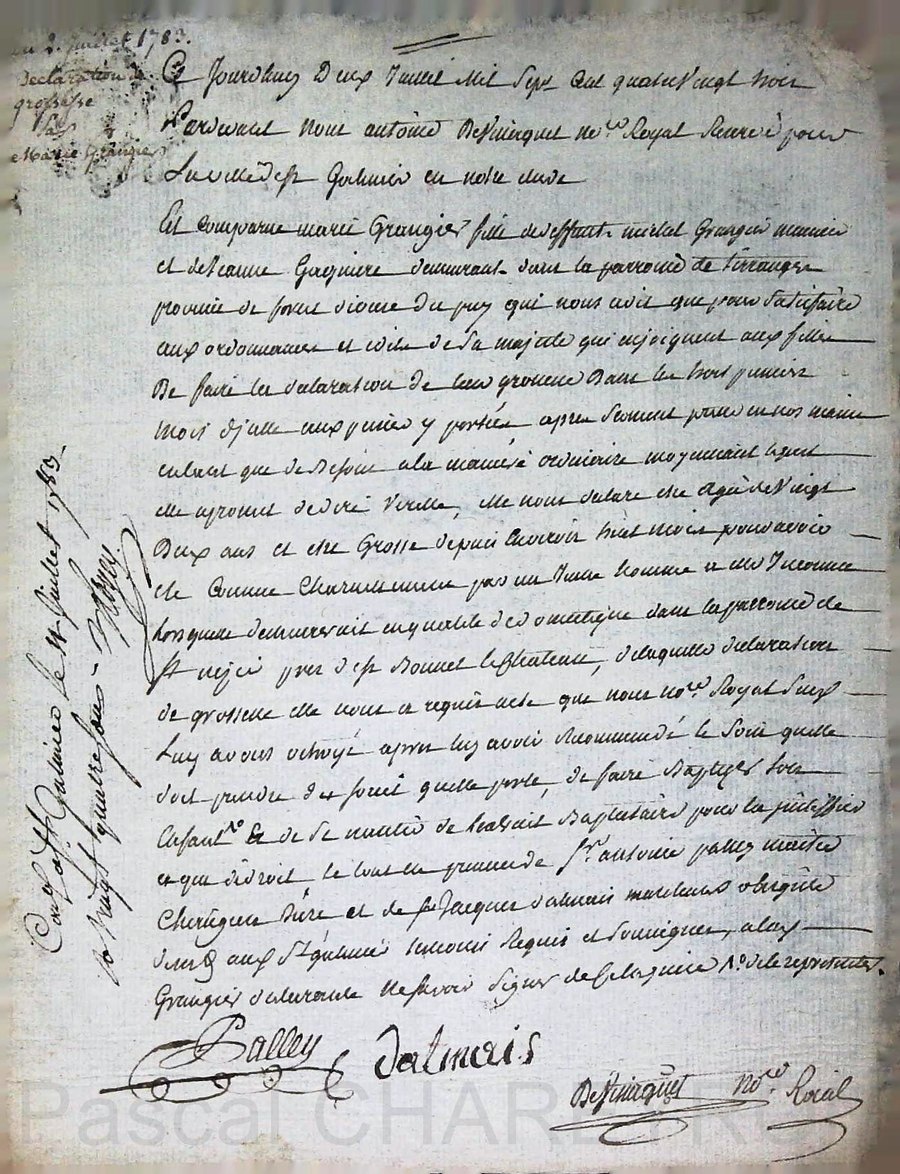 du 2. juillet 1783.
Declaration de
grossesse
Marie Grangier
Ce Jourdhuy Deux Juillet Mil Sept Cent quatre Vingt trois
Pardevant Nous antoine Deviverguet no.re Royal Reservé pour
La ville de st Galmier en notre etude
Est comparue marie Grangier fille de deffunt michel Grangier
et de Jeanne Gagniere demeurant dans la parroisse de tirranges
province de forest diocese du puy qui nous a dit que pour satisfaire
aux ordonnances et edits de sa majesté qui enjoignent aux filles
De faire la declaration de leur grossesse Dans les trois premiers
mois d'icelle aux peines y portées apres serment preté en nos mains
entant que de Besoin a la maniere ordinaire moyennant lequel
elle a promit de dire Verité, elle nous declare etre agée de Vingt
Deux ans et etre Grosse depuis Environ huit mois pour avoir
été Connue Charnellement par un Jeune homme a elle Inconnu
lorsquelle demeuroit en qualité de domestique dans la parroisse de
st nizié pres de st Bonnet le Chateau, de laquelle declaration
de grossesse elle nous a requis acte que nous no.re Royal susd
Luy avons octroyé apres luy avoir Recommandé le soin quelle
doit prendre du fruit quelle porte, de faire Baptizer son
Enfant & de se nantir de l'extrait Baptistaire pour la justiffier
a qui de droit le tout en presence de sr. antoine palley maitre
Chirurgien Juré et de sr Jacques dalmais marchand
aux st Galmier temoins Requis et soussignes, a lad
Grangier declarante ne savoir signer de ce enquise
Palley
Dalmais
Deviverguet no.re Roial
Con.lé a st Galmier le
quatre
juillet 1783
Pascal